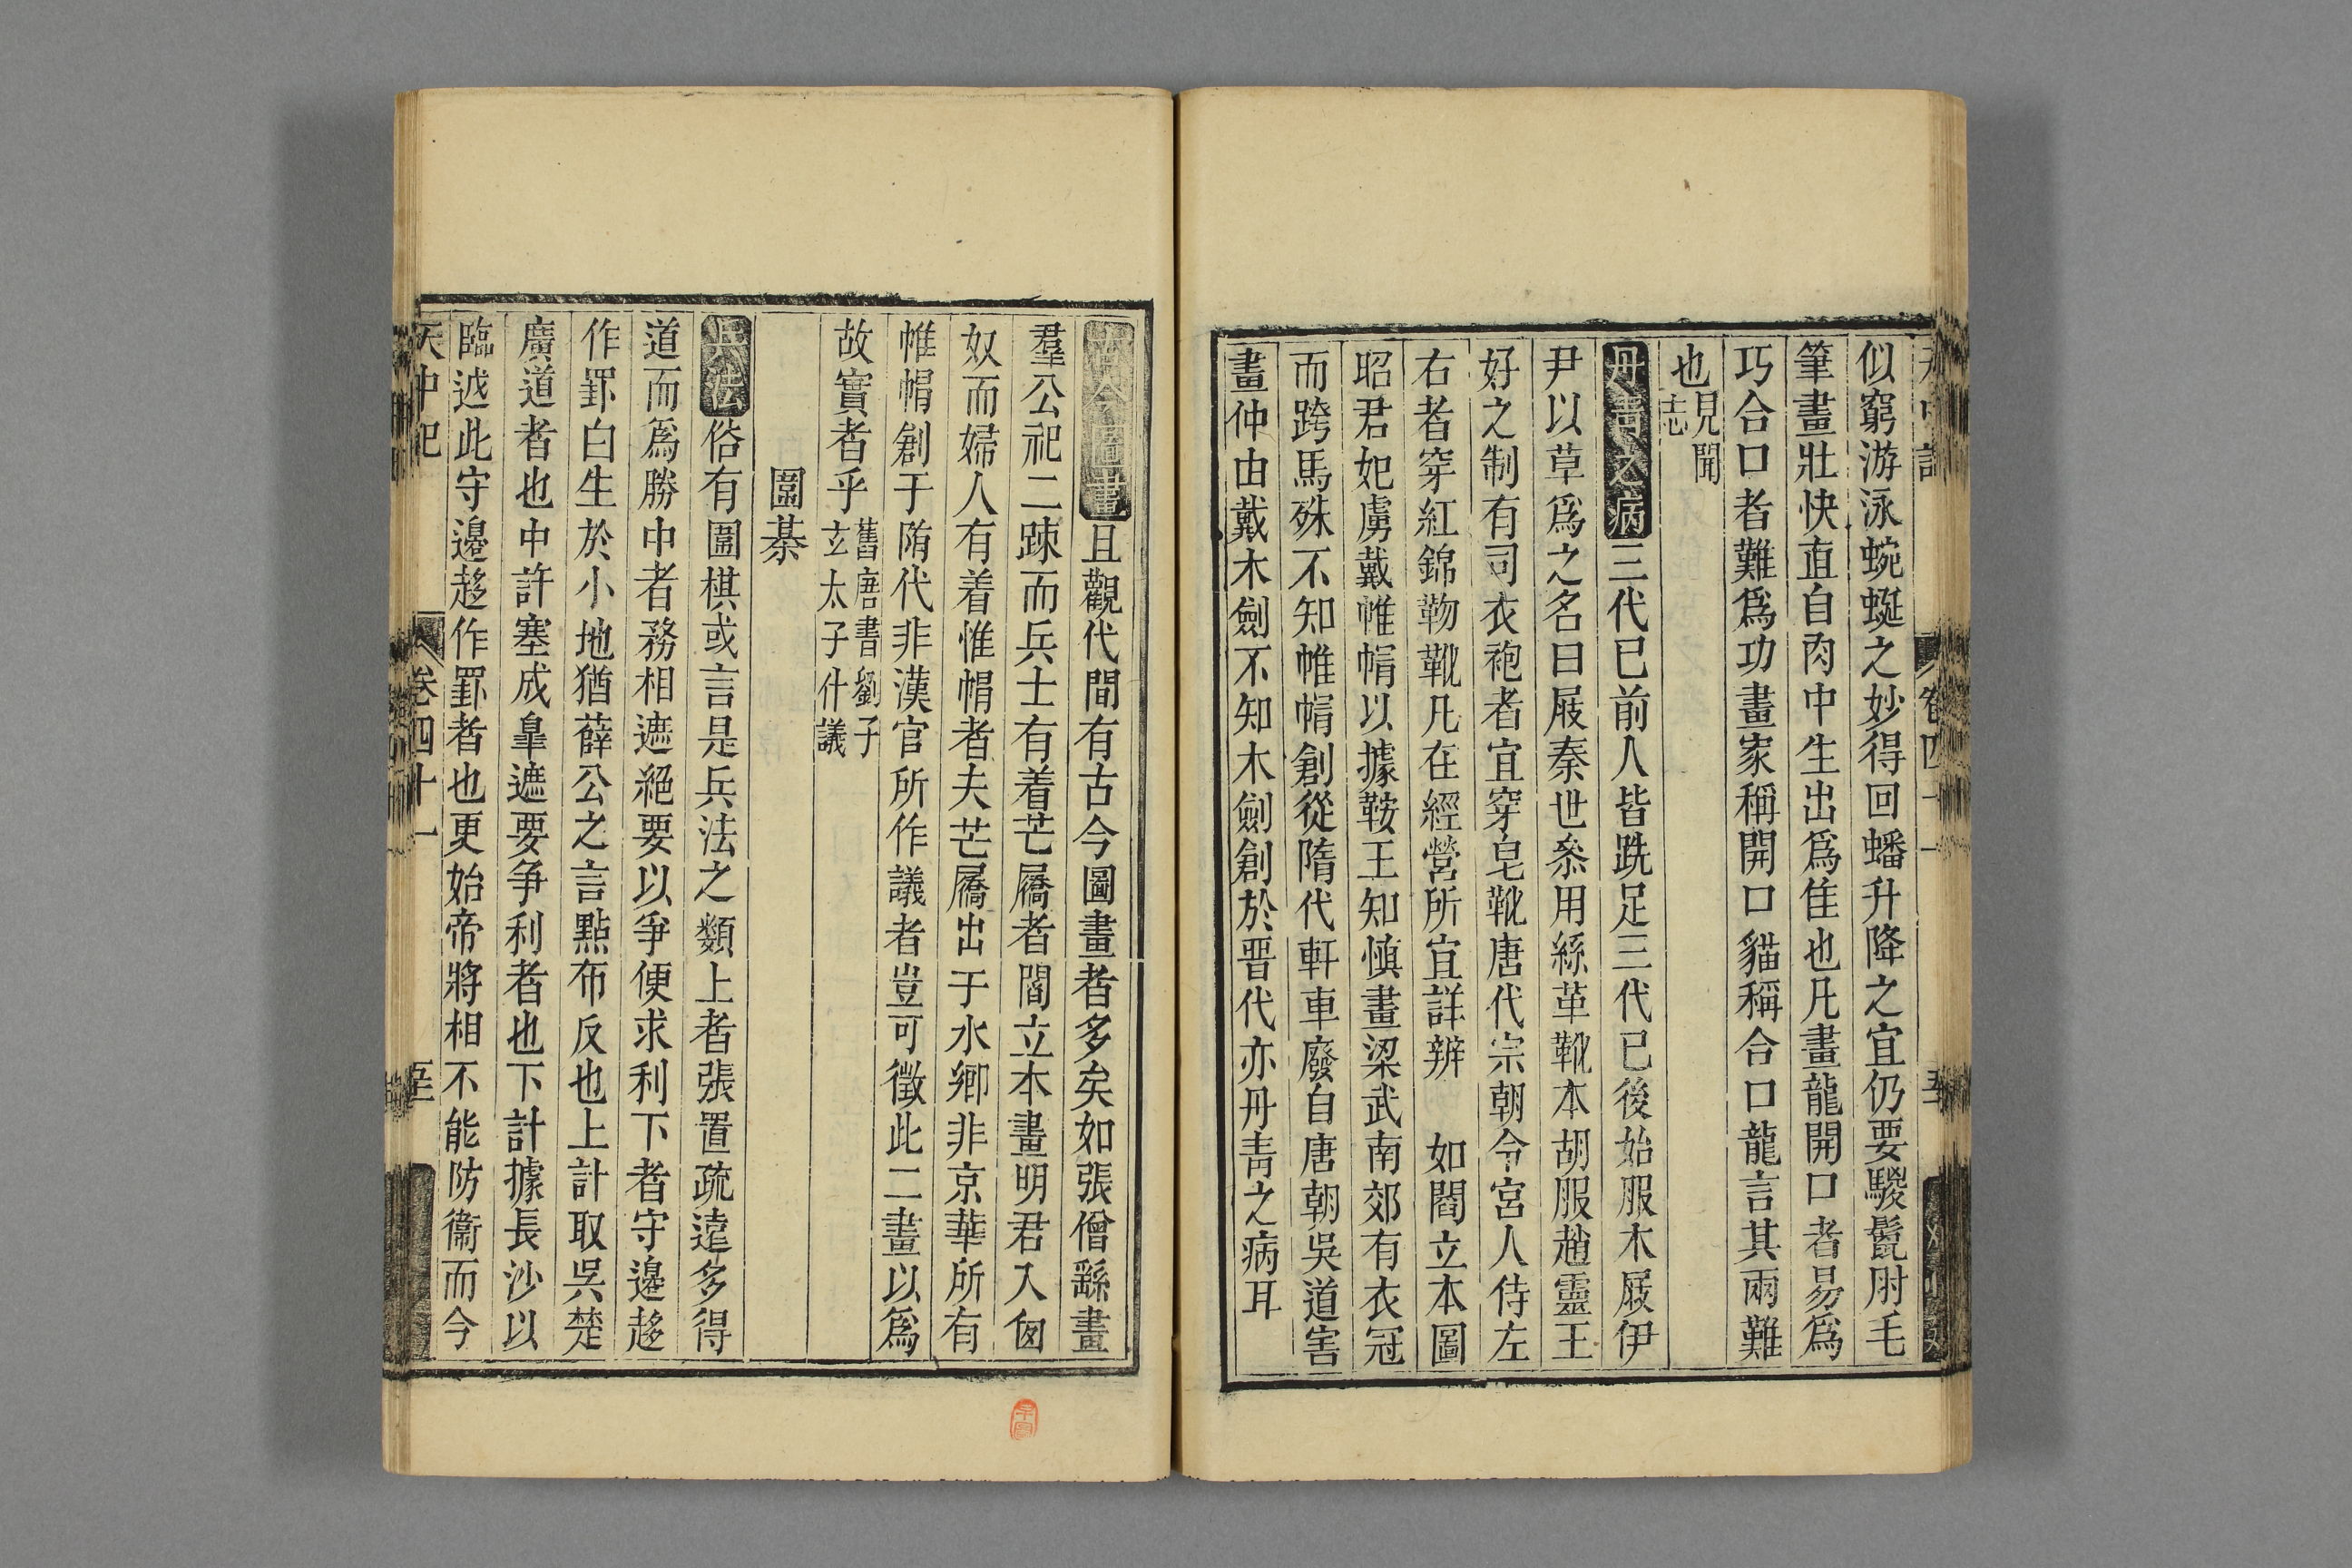 似窮游泳蜿蜒之妙得回蟠升降之宜仍要騣鬛肘毛
筆畫壯快直自肉中生出爲佳也凡畫龍開口者易爲
巧合口者難爲功畫家稱開口貓稱合口龍言其兩難
也見聞
志
丹青之病三代已前人皆跣足三代已後始服木屐伊
尹以草爲之名曰屐秦世叅用絲革靴本胡服趙靈王
好之制有司衣袍者宜穿皂靴唐代宗朝令宮人侍左
右者穿紅錦靿靴凡在經營所宜詳辨 如閻立本圖
昭君妃虜戴帷㡌以據鞍王知愼畫梁武南郊有衣冠
而跨馬殊不知帷㡌創從隋代軒車廢自唐朝吳道害
畫仲由戴木劍不知木劍創於晋代亦丹青之病耳
古今圖畫且觀代間有古今圖畫者多矣如張僧繇畫
羣公祀二踈而兵士有着芒屩者閻立本畫明君入匈
奴而婦人有着惟㡌者夫芒屩出于水鄉非京華所有
帷㡌創于隋代非漢官所作議者豈可徵此二畫以爲
故實者乎舊唐書劉子
玄太子什議
圍棊
兵法俗有圍棋或言是兵法之類上者張置疏遠多得
道而爲勝中者務相遮絕要以爭便求利下者守邊趍
作罫白生於小地猶薛公之言黥布反也上計取吳楚
廣道者也中許塞成臯遮要争利者也下計據長沙以
臨越此守邊趍作罫者也更始帝將相不能防衞而今
天中記
卷四十一